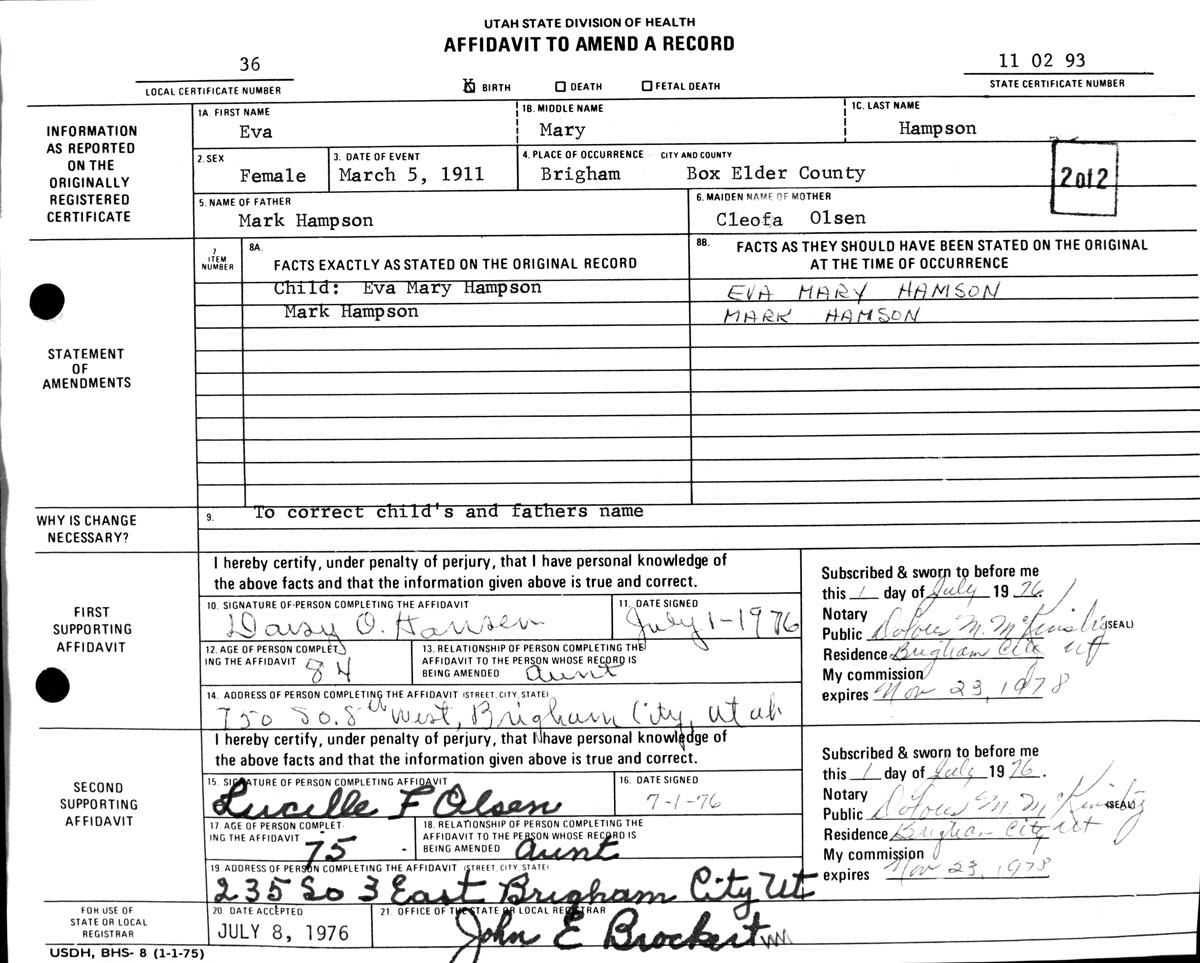 UTAH STATE DIVISION OF HEALTH
AFFIDAVIT TO AMEND A RECORD
36
LOCAL CERTIFICATE NUMBER
BIRTH DEATH FETAL DEATH
11 02 93
STATE CERTIFICATE NUMBER
INFORMATION
AS REPORTED
ON THE
ORIGINALLY
REGISTERED
CERTIFICATE
1A. FIRST NAME
Eva
1B. MIDDLE NAME
Mary
1C. LAST NAME
Hampson
2. SEX
Female
3. DATE OF EVENT
March 5, 1911
4. PLACE OF OCCURRENCE CITY AND COUNTY
Brigham Box Elder County
2 of 2
5. NAME OF FATHER
Mark Hampson
6. MAIDEN NAME OF MOTHER
Cleofa Olsen
STATEMENT
OF
AMENDMENTS
7
ITEM
NUMBER
8A.
FACTS EXACTLY AS STATED ON THE ORIGINAL RECORD
8B. FACTS AS THEY SHOULD HAVE BEEN STATED ON THE ORIGINAL
AT THE TIME OF OCCURRENCE
Child: Eva Mary Hampson
EVA MARY HAMSON
Mark Hampson
MARK HAMSON
WHY IS CHANGE
NECESSARY?
9. To correct child's and fathers name
FIRST
SUPPORTING
AFFIDAVIT
I hereby certify, under penalty of perjury, that I have personal knowledge of
the above facts and that the information given above is true and correct.
10. SIGNATURE OF PERSON COMPLETING THE AFFIDAVIT
Daisy O. Hansen
11. DATE SIGNED
July 1-1976
12. AGE OF PERSON COMPLET
ING THE AFFIDAVIT 84
13. RELATIONSHIP OF PERSON COMPLETING THE
AFFIDAVIT TO THE PERSON WHOSE RECORD IS
BEING AMENDED aunt
14. ADDRESS OF PERSON COMPLETING THE AFFIDAVIT (STREET, CITY, STATE)
750 So. 8th West, Brigham City, Utah
Subscribed & sworn to before me
this 1 day of July 1976.
Notary
Public Dolores M. McKinstry (SEAL)
Residence Brigham City Ut
My commission
expires Nov 23, 1978
SECOND
SUPPORTING
AFFIDAVIT
I hereby certify, under penalty of perjury, that I have personal knowledge of
the above facts and that the information given above is true and correct.
15. SIGNATURE OF PERSON COMPLETING AFFIDAVIT
Lucille F Olsen
16. DATE SIGNED
7-1-76
17. AGE OF PERSON COMPLET-
ING THE AFFIDAVIT 75
18. RELATIONSHIP OF PERSON COMPLETING THE
AFFIDAVIT TO THE PERSON WHOSE RECORD IS
BEING AMENDED aunt
19. ADDRESS OF PERSON COMPLETING THE AFFIDAVIT (STREET, CITY, STATE)
235 So 3 East Brigham City Ut
Subscribed & sworn to before me
this 1 day of July 1976.
Notary
Public Dolores M. McKinstry (SEAL)
Residence Brigham City Ut
My commission
expires Nov 23, 1978
FOR USE OF
STATE OR LOCAL
REGISTRAR
20. DATE ACCEPTED
JULY 8, 1976
21. OFFICE OF THE STATE OR LOCAL REGISTRAR
John E Brockert
USDH, BHS- 8 (1-1-75)